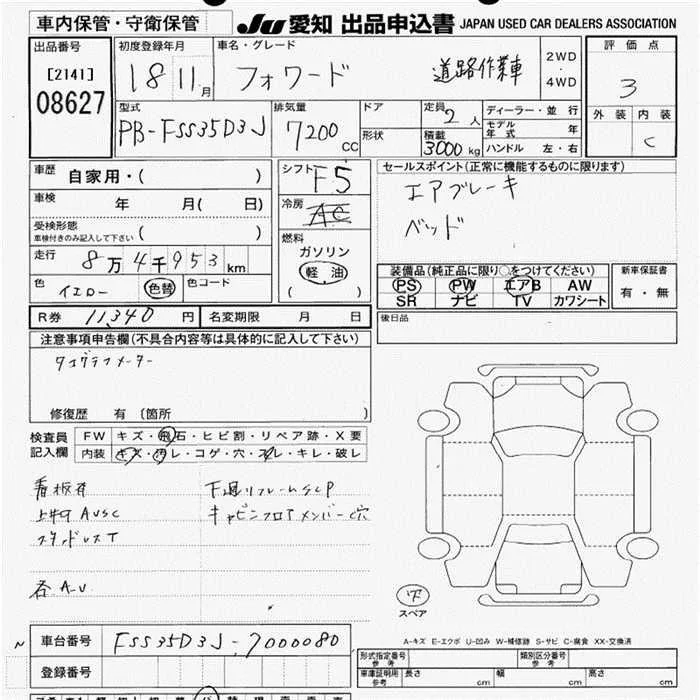 車内保管・守衛保管
JU 愛知 出品申込書 JAPAN USED CAR DEALERS ASSOCIATION
出品番号
[2141]
08627
初度登録年月
18 11月
車名・グレード
フォワード 道路作業車
2WD
・
4WD
評価点
3
外装 内装
C
型式
PB-FSS35D3J
排気量
7200 CC
ドア
形状
定員 2 人
積載 3000 kg
ディーラー・並行
モデル年式 年
ハンドル 左・右
車歴 自家用・( )
車検 年 月( 日)
受検形態
車検付きのみ記入して下さい ( )
走行 8万4千953km
色 イエロー 色替 色コード
シフト F5
冷房 AC
燃料
ガソリン
軽油
( )
セールスポイント(正常に機能するものに限ります)
エアブレーキ
ベッド
装備品(純正品に限り○をつけてください)
PS PW エアB AW
SR ナビ TV カワシート
新車保証書
有・無
R券 11,340 円 名変期限 月 日
後日品
注意事項申告欄(不具合内容等は具体的に記入して下さい)
タコグラフメーター
修復歴 有 〔箇所 〕
検査員記入欄
FW キズ・飛石・ヒビ割・リペア跡・X要
内装 キズ・汚レ・コゲ・穴・スレ・キレ・破レ
看板有
下廻リフレームSCP
キャビンフロアメンバーC穴
各A.U
下
スペア
A-キズ E-エクボ U-凹み W-補修跡 S-サビ C-腐食 XX-交換済
車台番号 FSS35D3J-7000080
登録番号
形式指定番号 参考
類別区分番号 参考
車庫証明用 参考 長さ cm 幅 cm 高さ cm